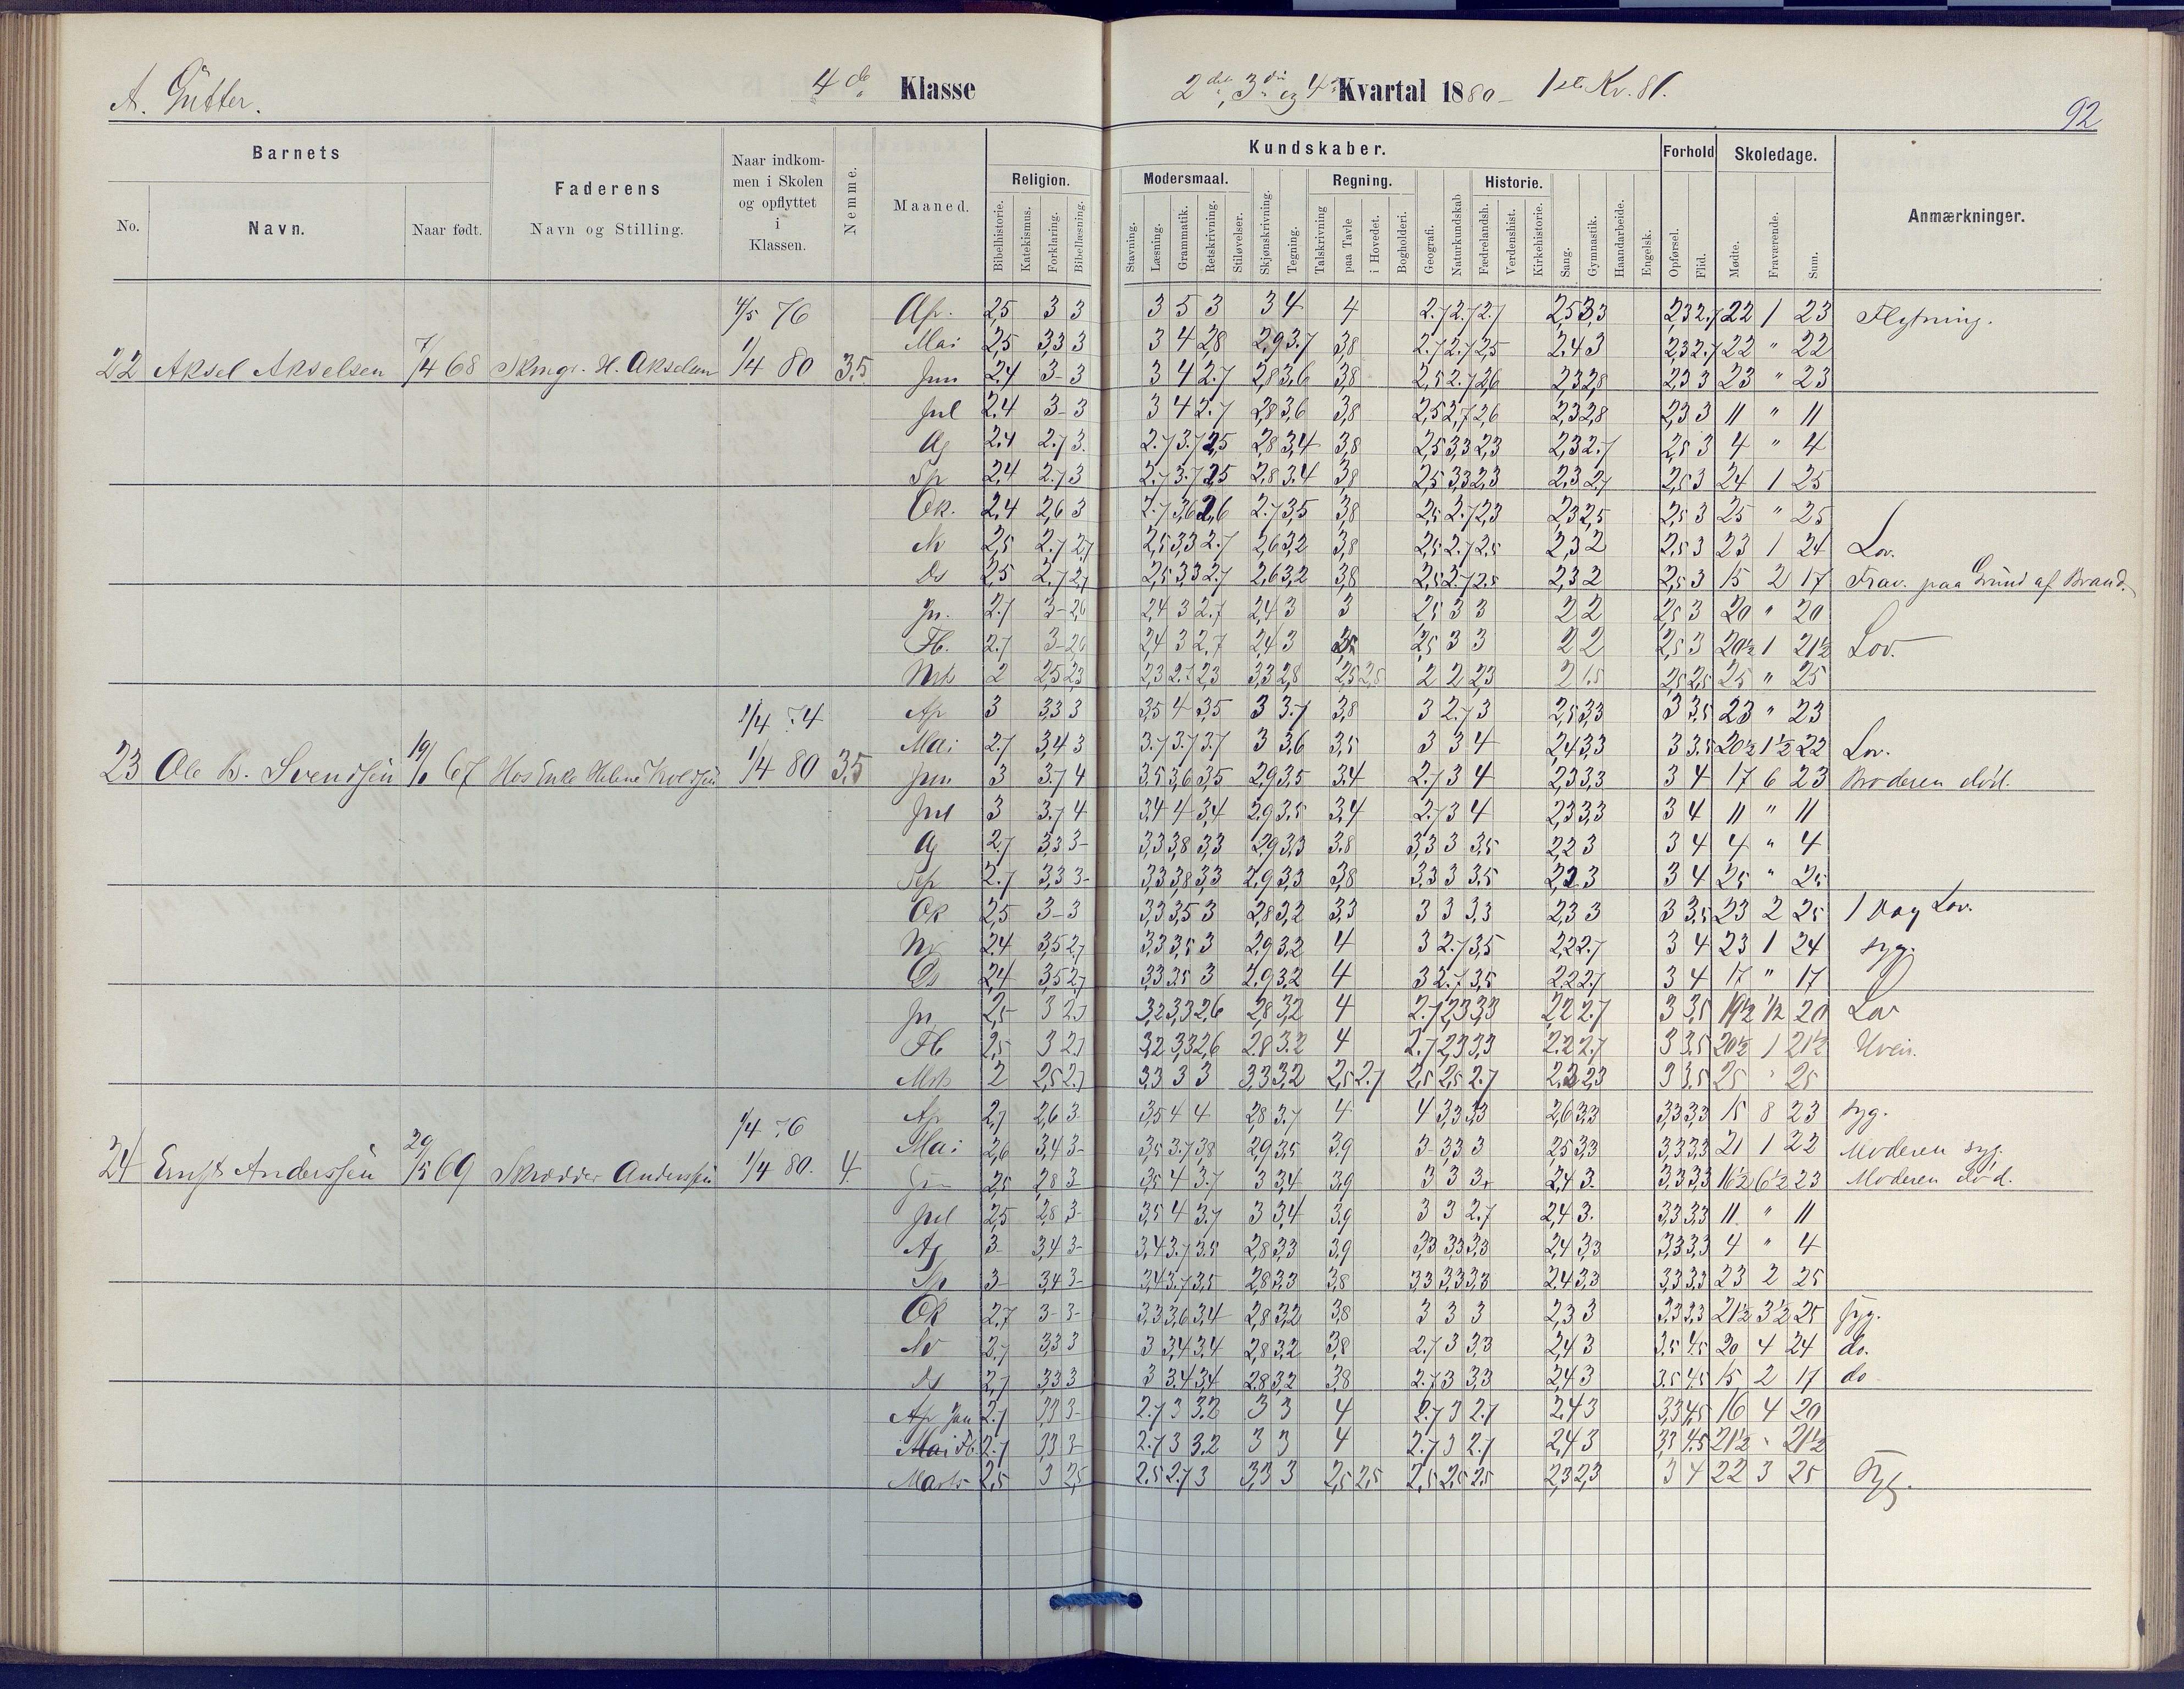 A. Gutter.
4de Klasse
2det, 3die og 4de Kvartal 1880 - 1ste Kv. 81.
92
Barnets
No.
Navn.
Naar født.
Faderens
Navn og Stilling.
Naar indkom-
men i Skolen
og opflyttet
i
Klassen.
Nemme.
Maaned.
Kundskaber.
Religion.
Bibelhistorie.
Katekismus.
Forklaring.
Bibellæsning.
Modersmaal.
Stavning.
Læsning.
Grammatik.
Retskrivning.
Stiløvelser.
Skjønskrivning.
Tegning.
Regning.
Talskrivning
paa Tavle
i Hovedet.
Bogholderi.
Geografi.
Naturkundskab
Historie.
Fædrelandsh.
Verdenshist.
Kirkehistorie.
Sang.
Gymnastik.
Haandarbeide.
Engelsk.
Forhold
Opførsel.
Flid.
Skoledage.
Mødte.
Fraværende.
Sum.
Anmærkninger.
4/5 76 Ap. 2,5 3 3 3 5 3 3 4 4 2.7 2.7 2.7 2,5 3,3 2,3 2.7 22 1 23 Flytning.
Mai 2,5 3,3 3 3 4 2,8 2,9 3.7 3,8 2.7 2.7 2,5 2.4 3 2,3 2.7 22 " 22
22 Aksel Akselsen 7/4 68 H. Akselsen 1/4 80 3,5 Jun 2.4 3- 3 3 4 2.7 2,8 3,6 3,8 2,5 2.7 2,6 2,3 2,8 2,3 3 23 " 23
Jul 2.4 3- 3 3 4 2.7 2,8 3,6 3,8 2,5 2,7 2,6 2,3 2,8 2,3 3 11 " 11
Ag 2.4 2.7 3. 2.7 3.7 2,5 2,8 3,4 3,8 2,5 3,3 2,3 2,3 2.7 2,5 3 4 " 4
Sp 2,4 2.7 3 2.7 3.7 2,5 2,8 3.4 3,8 2,5 3,3 2,3 2,3 2,7 2,5 3 24 1 25
Ok. 2,4 2,6 3 2.7 3,6 2,6 2.7 3,5 3,8 2,5 2.7 2,3 2,3 2,5 2,5 3 25 " 25
Nv 2,5 2.7 2,7 2,5 3,3 2.7 2,6 3,2 3,8 2,5 2.7 2,5 2,3 2 2,5 3 23 1 24 Lov.
Ds 2,5 2.7 2,7 2,5 3,3 2.7 2,6 3,2 3,8 2,5 2.7 2.5 2,3 2 2,5 3 15 2 17 Frav. paa Grund af Brand.
Jn. 2.7 3- 2,6 2,4 3 2.7 2,4 3 3 2,5 3 3 2 2 2,5 3 20 " 20
Fb. 2.7 3- 2,6 2,4 3 2,7 2,4 3 2,5 3 3 2 2 2,5 3 20½ 1 21½ Lov.
Mrts 2 2,5 2,3 2,3 2.7 2,3 3,3 2,8 2,5 2,8 2 2 2,3 2 1.5 2,5 2,5 25 " 25
1/4 74 Ap 3 3,3 3 3,5 4 3,5 3 3.7 3,8 3 2.7 3 2,5 3,3 3 3,5 23 " 23
Mai 2.7 3,4 3 3.7 3.7 3.7 3 3,6 3,5 3 3 4 2,4 3,3 3 3.5 20½ 1½ 22 Lov.
23 Ole B. Svendsen 67 Hos Enke Helene 1/4 80 3,5 Jun 3 3.7 4 3.5 3,6 3,5 2,9 3,5 3.4 2.7 3 4 2,3 3,3 3 4 17 6 23 Broderen død.
Jul 3 3.7 4 3,4 4 3,4 2,9 3.5 3,4 2.7 3 4 2,3 3,3 3 4 11 " 11
Ag 2.7 3,3 3- 3,3 3,8 3,3 2,9 3,3 3.8 3,3 3 3,5 2,2 3 3 4 4 " 4
Sep 2.7 3,3 3- 3,3 3,8 3,3 2,9 3,3 3,8 3,3 3 3,5 2,2 3 3 4 25 " 25
Ok 2,5 3- 3 3,3 3,5 3 2,8 3,2 3,3 3 3 3,3 2,3 3 3 3,5 23 2 25 1 Dag Lov.
Nv 2.4 3,5 2,7 3,3 3,5 3 2,9 3,2 4 3 2.7 3,5 2,2 2.7 3 4 23 1 24 syg.
Ds 2,4 3,5 2,7 3,3 3,5 3 2,9 3,2 4 3 2.7 3,5 2,2 2,7 3 4 17 " 17
Jn 2,5 3 2,7 3,2 3,3 2,6 2,8 3,2 4 2.7 2,3 3,3 2,2 2.7 3 3,5 19½ ½ 20 Lov
Fb 2,5 3 2,7 3,2 3,3 2,6 2.8 3.2 4 2.7 2,3 3,3 2.2 2.7 3 3.5 20½ 1 21½ Uveir.
Mrts 2 2,5 2.7 3,3 3 3 3,3 3,2 2,5 2.7 2,5 2,5 2.7 2,3 2,3 3 3.5 25 " 25
1/4 76 Ap 2,7 2,6 3 3,5 4 4 2,8 3.7 4 4 3,3 3,3 2,6 3,3 3,3 3,3 15 8 23 syg.
Mai 2,6 3,4 3- 3,5 3.7 3,8 2,9 3,5 3.9 3- 3,3 3 2,5 3,3 3,3 3,3 21 1 22 Moderen syg.
24 Ernst Anderssen 29/5 69 Skrædder Anderssen 1/4 80. 4. Jun 2,5 2,8 3- 3,5 4 3.7 3 3,4 3,9 3 3 3 2,4 3. 3,3 3,3 16½ 6½ 23 Moderen død.
Jul 2,5 2,8 3- 3,5 4 3.7 3 3,4 3.9 3 3 2.7 2,4 3. 3,3 3,3 11 " 11
Ag 3- 3,4 3- 3,4 3.7 3.5 2,8 3,3 3,9 3,3 3,3 3,3 2,4 3,3 3,3 3,3 4 " 4
Sp 3- 3,4 3- 3,4 3.7 3,5 2,8 3,3 3,8 3,3 3,3 3,3 2,4 3,3 3,3 3,3 23 2 25
Ok 2.7 3- 3- 3,3 3,6 3,4 2,8 3,2 3,8 3 3 3 2,3 3 3,3 3,3 21½ 3½ 25 syg.
Nv 2,7 3,3 3 3 3,4 3.4 2,8 3,2 3,8 2.7 3 3,3 2,4 3 3,5 4,5 20 4 24 do.
Ds 2,7 3,3 3 3 3.4 3,4 2.8 3,2 3,8 2.7 3 3,3 2,4 3 3.5 4,5 15 2 17 do
Ap Jan 2.7 3,3 3- 2.7 3 3.2 3 3 4 2.7 3 2.7 2.4 3 3,3 4,5 16 4 20
Mai Fb. 2.7 3,3 3- 2.7 3 3.2 3 3 4 2.7 3 2.7 2,4 3 3,3 4.5 21½ " 21½
Marts 2,5 3 2,5 2.5 2.7 3 3,3 3 2,5 2,5 2,5 2,5 2,5 2,3 2,3 3 4 22 3 25 Syg.